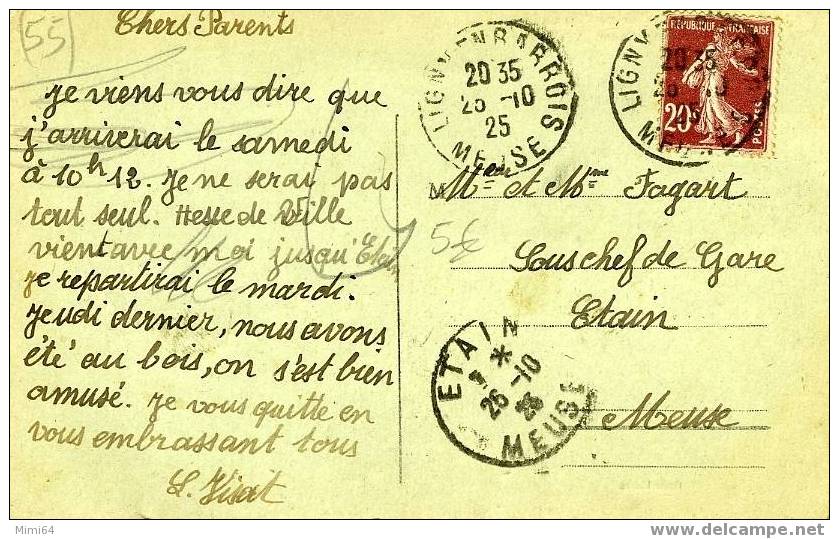 (55)
Chers Parents
Je viens vous dire que
j'arriverai le samedi
à 10h 12. Je ne serai pas
tout seul. Hesse de Ville
vient avec moi jusqu'Etain
Je repartirai le mardi.
Jeudi dernier, nous avons
été au bois, on s'est bien
amusé. Je vous quitte en
vous embrassant tous
LIGNY EN BARROIS
20 35
25 -10
25
MEUSE
RÉPUBLIQUE FRANÇAISE
20c
POSTES
LIGNY
20 35
Mr et Mme Fagart
Sous chef de Gare
Etain
Meuse
ETAIN
26 -10
MEUSE
Mimi64
www.delcampe.net